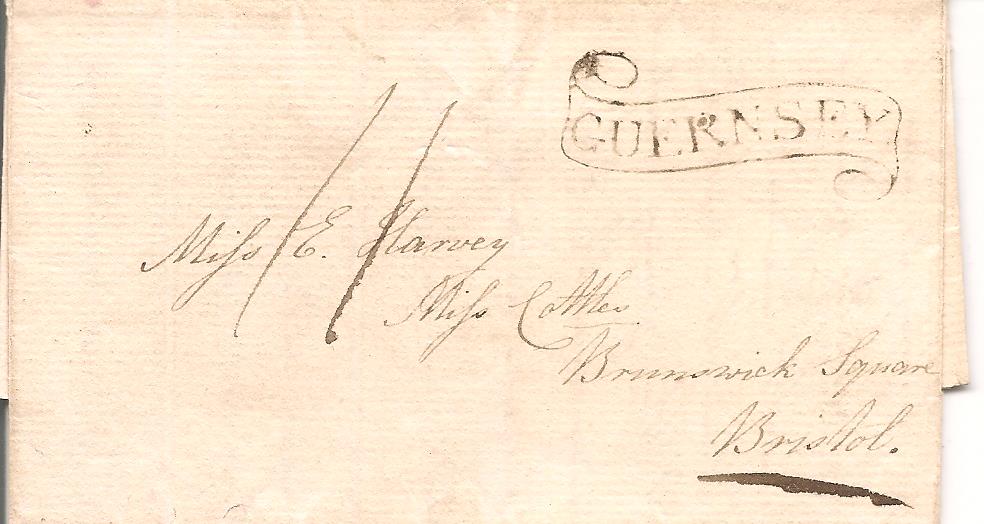 GUERNSEY
11
Miss E. Harvey
Miss Cottles
Brunswick Square
Bristol.